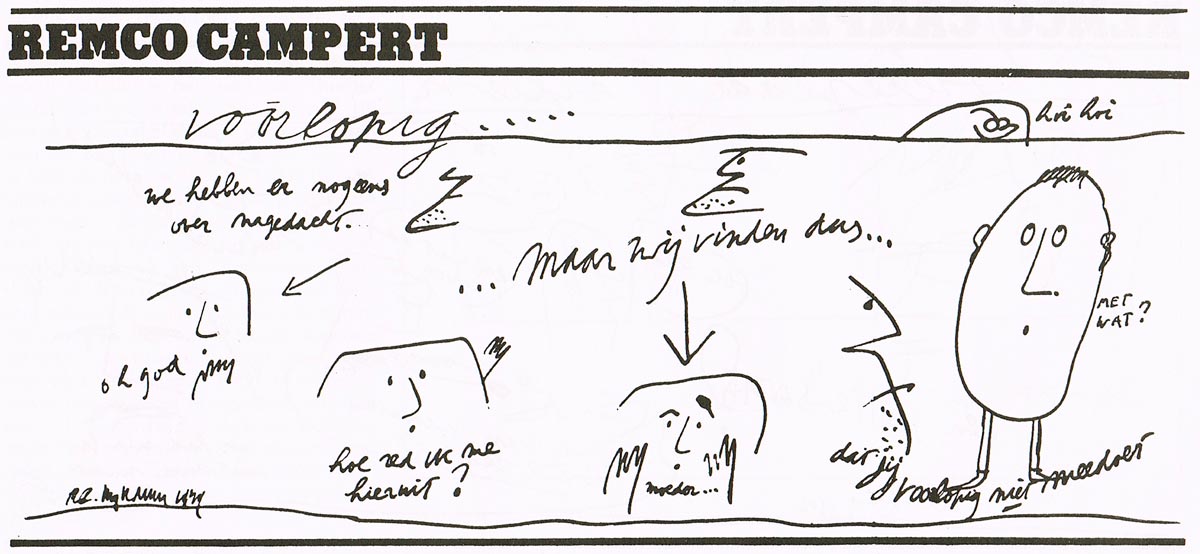 REMCO CAMPERT
voorlopig.....
hi hi
we hebben er nogeens
over nagedacht...
... maar wij vinden das...
oh god
hoe red ik me
hieruit?
moeder...
MET
WAT?
dat jij
voorlopig niet meedoet